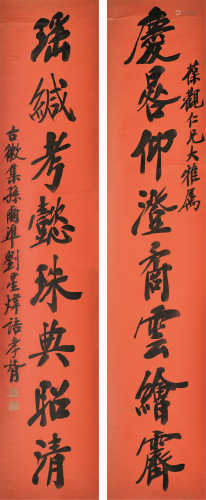 葆觀仁兄大雅属
慶晷仰澄矞雲繪霽
瑶緘考懿珠典昭清
古徵集孫爾準劉星煒語孝胥